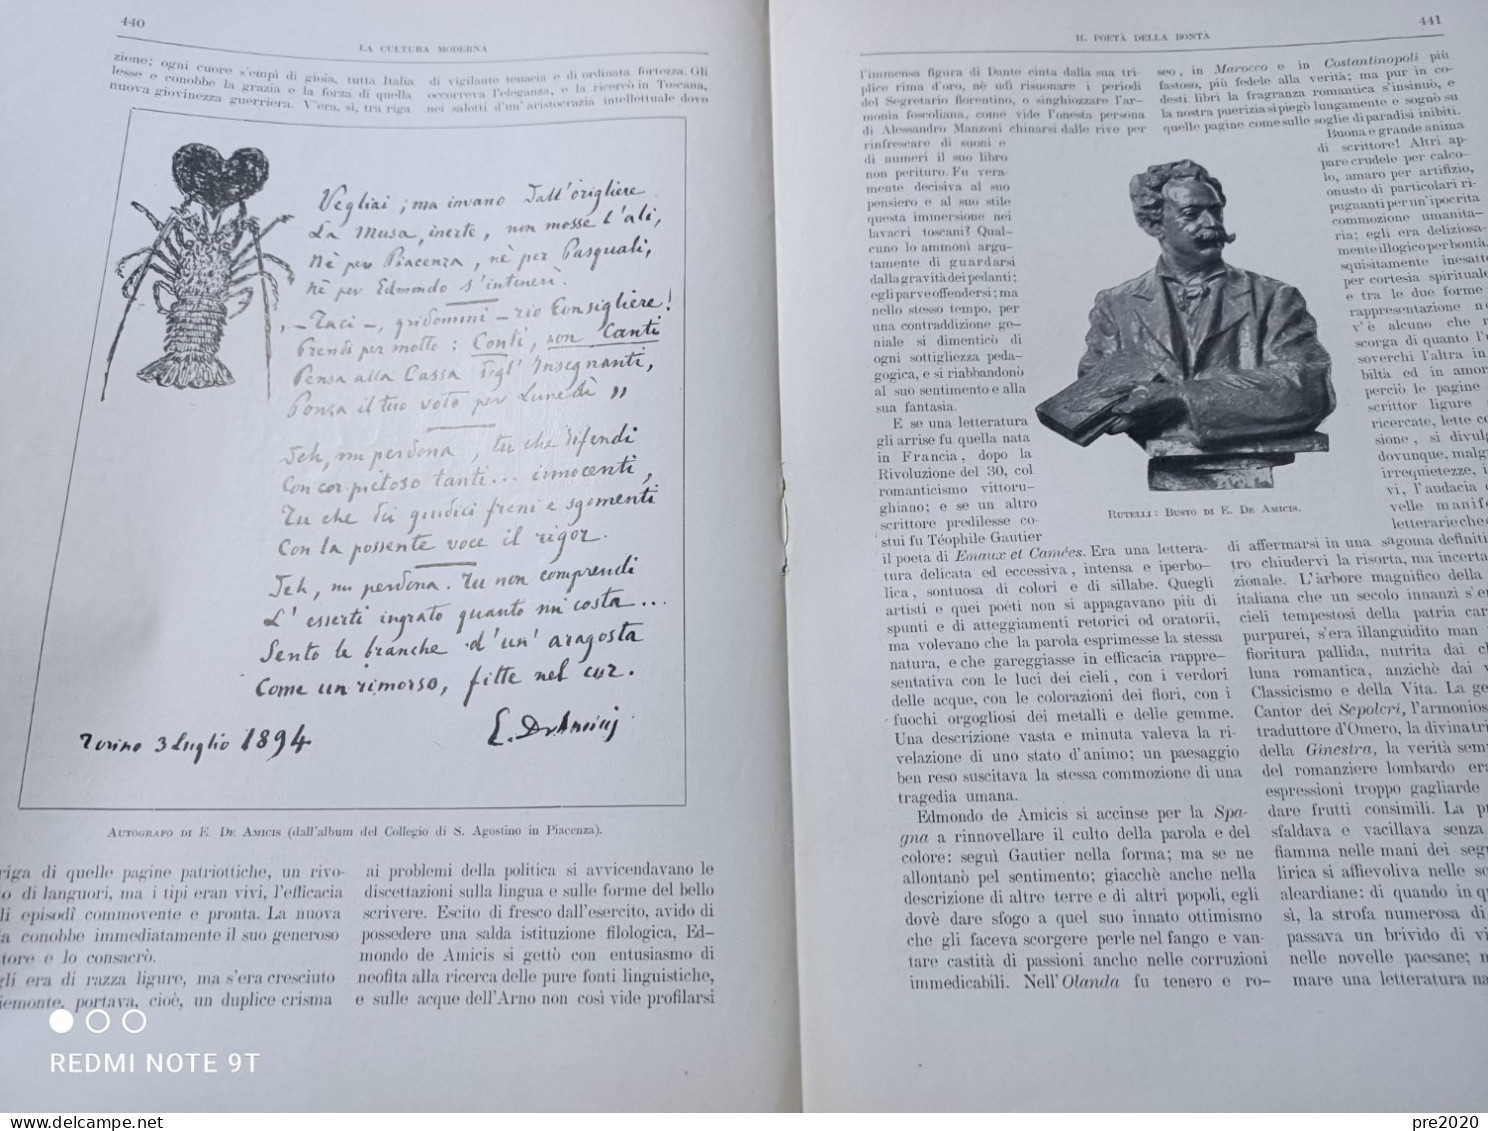 440
LA CULTURA MODERNA
zione; ogni cuore s'empì di gioia, tutta Italia
lesse e conobbe la grazia e la forza di quella
nuova giovinezza guerriera. V'era, sì, tra riga
di vigilante tenacia e di ordinata fortezza. Gli
occorreva l'eleganza, e la ricercò in Toscana,
nei salotti d'un'aristocrazia intellettuale dove
Vegliai; ma invano dall'origliere
La Musa, inerte, non mosse l'ali,
Nè per Piacenza, nè per Pasquali,
Nè per Edmondo s'intenerì.
„ — Taci —, gridommi — rio Consigliere!
Prendi per motto: Conti, non Canti
Pensa alla Cassa degl'Insegnanti,
Pensa il tuo voto per Lunedì „
Deh, mi perdona, tu che difendi
Con cor pietoso tanti... innocenti,
Tu che dei giudici freni e sgomenti
Con la possente voce il rigor.
Deh, mi perdona. Tu non comprendi
L'esserti ingrato quanto mi costa...
Sento le branche d'un'aragosta
Come un rimorso, fitte nel cor.
E. De Amicis
Torino 3 Luglio 1894
AUTOGRAFO DI E. DE AMICIS (dall'album del Collegio di S. Agostino in Piacenza).
riga di quelle pagine patriottiche, un rivo-
o di languori, ma i tipi eran vivi, l'efficacia
li episodî commovente e pronta. La nuova
ia conobbe immediatamente il suo generoso
tore e lo consacrò.
gli era di razza ligure, ma s'era cresciuto
iemonte, portava, cioè, un duplice crisma
ai problemi della politica si avvicendavano le
discettazioni sulla lingua e sulle forme del bello
scrivere. Escito di fresco dall'esercito, avido di
possedere una salda istituzione filologica, Ed-
mondo de Amicis si gettò con entusiasmo di
neofita alla ricerca delle pure fonti linguistiche,
e sulle acque dell'Arno non così vide profilarsi
IL POETA DELLA BONTÀ
441
l'immensa figura di Dante cinta dalla sua tri-
plice rima d'oro, nè udì risuonare i periodi
del Segretario fiorentino, o singhiozzare l'ar-
monia foscoliana, come vide l'onesta persona
di Alessandro Manzoni chinarsi dalle rive per
rinfrescare di suoni e
di numeri il suo libro
non perituro. Fu vera-
mente decisiva al suo
pensiero e al suo stile
questa immersione nei
lavacri toscani? Qual-
cuno lo ammonì argu-
tamente di guardarsi
dalla gravità dei pedanti;
egli parve offendersi; ma
nello stesso tempo, per
una contraddizione ge-
niale si dimenticò di
ogni sottigliezza peda-
gogica, e si riabbandonò
al suo sentimento e alla
sua fantasia.
E se una letteratura
gli arrise fu quella nata
in Francia, dopo la
Rivoluzione del 30, col
romanticismo vittoru-
ghiano; e se un altro
scrittore predilesse co-
stui fu Téophile Gautier
il poeta di Emaux et Camées. Era una lettera-
tura delicata ed eccessiva, intensa e iperbo-
lica, sontuosa di colori e di sillabe. Quegli
artisti e quei poeti non si appagavano più di
spunti e di atteggiamenti retorici od oratorii,
ma volevano che la parola esprimesse la stessa
natura, e che gareggiasse in efficacia rappre-
sentativa con le luci dei cieli, con i verdori
delle acque, con le colorazioni dei fiori, con i
fuochi orgogliosi dei metalli e delle gemme.
Una descrizione vasta e minuta valeva la ri-
velazione di uno stato d'animo; un paesaggio
ben reso suscitava la stessa commozione di una
tragedia umana.
Edmondo de Amicis si accinse per la Spa-
gna a rinnovellare il culto della parola e del
colore: seguì Gautier nella forma; ma se ne
allontanò pel sentimento; giacchè anche nella
descrizione di altre terre e di altri popoli, egli
dovè dare sfogo a quel suo innato ottimismo
che gli faceva scorgere perle nel fango e van-
tare castità di passioni anche nelle corruzioni
immedicabili. Nell'Olanda fu tenero e ro-
seo, in Marocco e in Costantinopoli più
fastoso, più fedele alla verità; ma pur in co-
desti libri la fragranza romantica s'insinuò, e
la nostra puerizia si piegò lungamente e sognò su
quelle pagine come sulle soglie di paradisi inibiti.
Buona e grande anima
di scrittore! Altri ap-
pare crudele per calco-
lo, amaro per artifizio,
onusto di particolari ri-
pugnanti per un'ipocrita
commozione umanita-
ria; egli era deliziosa-
mente illogico per bontà,
squisitamente inesatt
per cortesia spirituale
e tra le due forme
rappresentazione n
v'è alcuno che n
scorga di quanto l'u
soverchi l'altra in
biltà ed in amor
perciò le pagine
scrittor ligure
ricercate, lette c
sione, si divulg
dovunque, malg
irrequietezze, i
vi, l'audacia
velle manife
letterarie che
RUTELLI: BUSTO DI E. DE AMICIS.
di affermarsi in una sagoma definiti
tro chiudervi la risorta, ma incerta
zionale. L'àrbore magnifico della
italiana che un secolo innanzi s'e
cieli tempestosi della patria car
purpurei, s'era illanguidito man
fioritura pallida, nutrita dai c
luna romantica, anzichè dai
Classicismo e della Vita. La ge
Cantor dei Sepolcri, l'armonios
traduttore d'Omero, la divinatri
della Ginestra, la verità sem
del romanziere lombardo era
espressioni troppo gagliarde
dare frutti consimili. La p
sfaldava e vacillava senza
fiamma nelle mani dei segu
lirica si affievoliva nelle s
aleardiane: di quando in q
sì, la strofa numerosa di
passava un brivido di vi
nelle novelle paesane; n
mare una letteratura na
REDMI NOTE 9T
pre2020